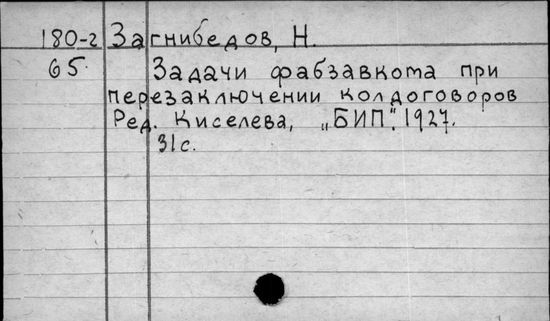 180-г Загнибедов, Н.
65. Задачи фабзавкома при
перезаключении колдоговоров
Ред. Киселева, „БИП". 1927.
31с.